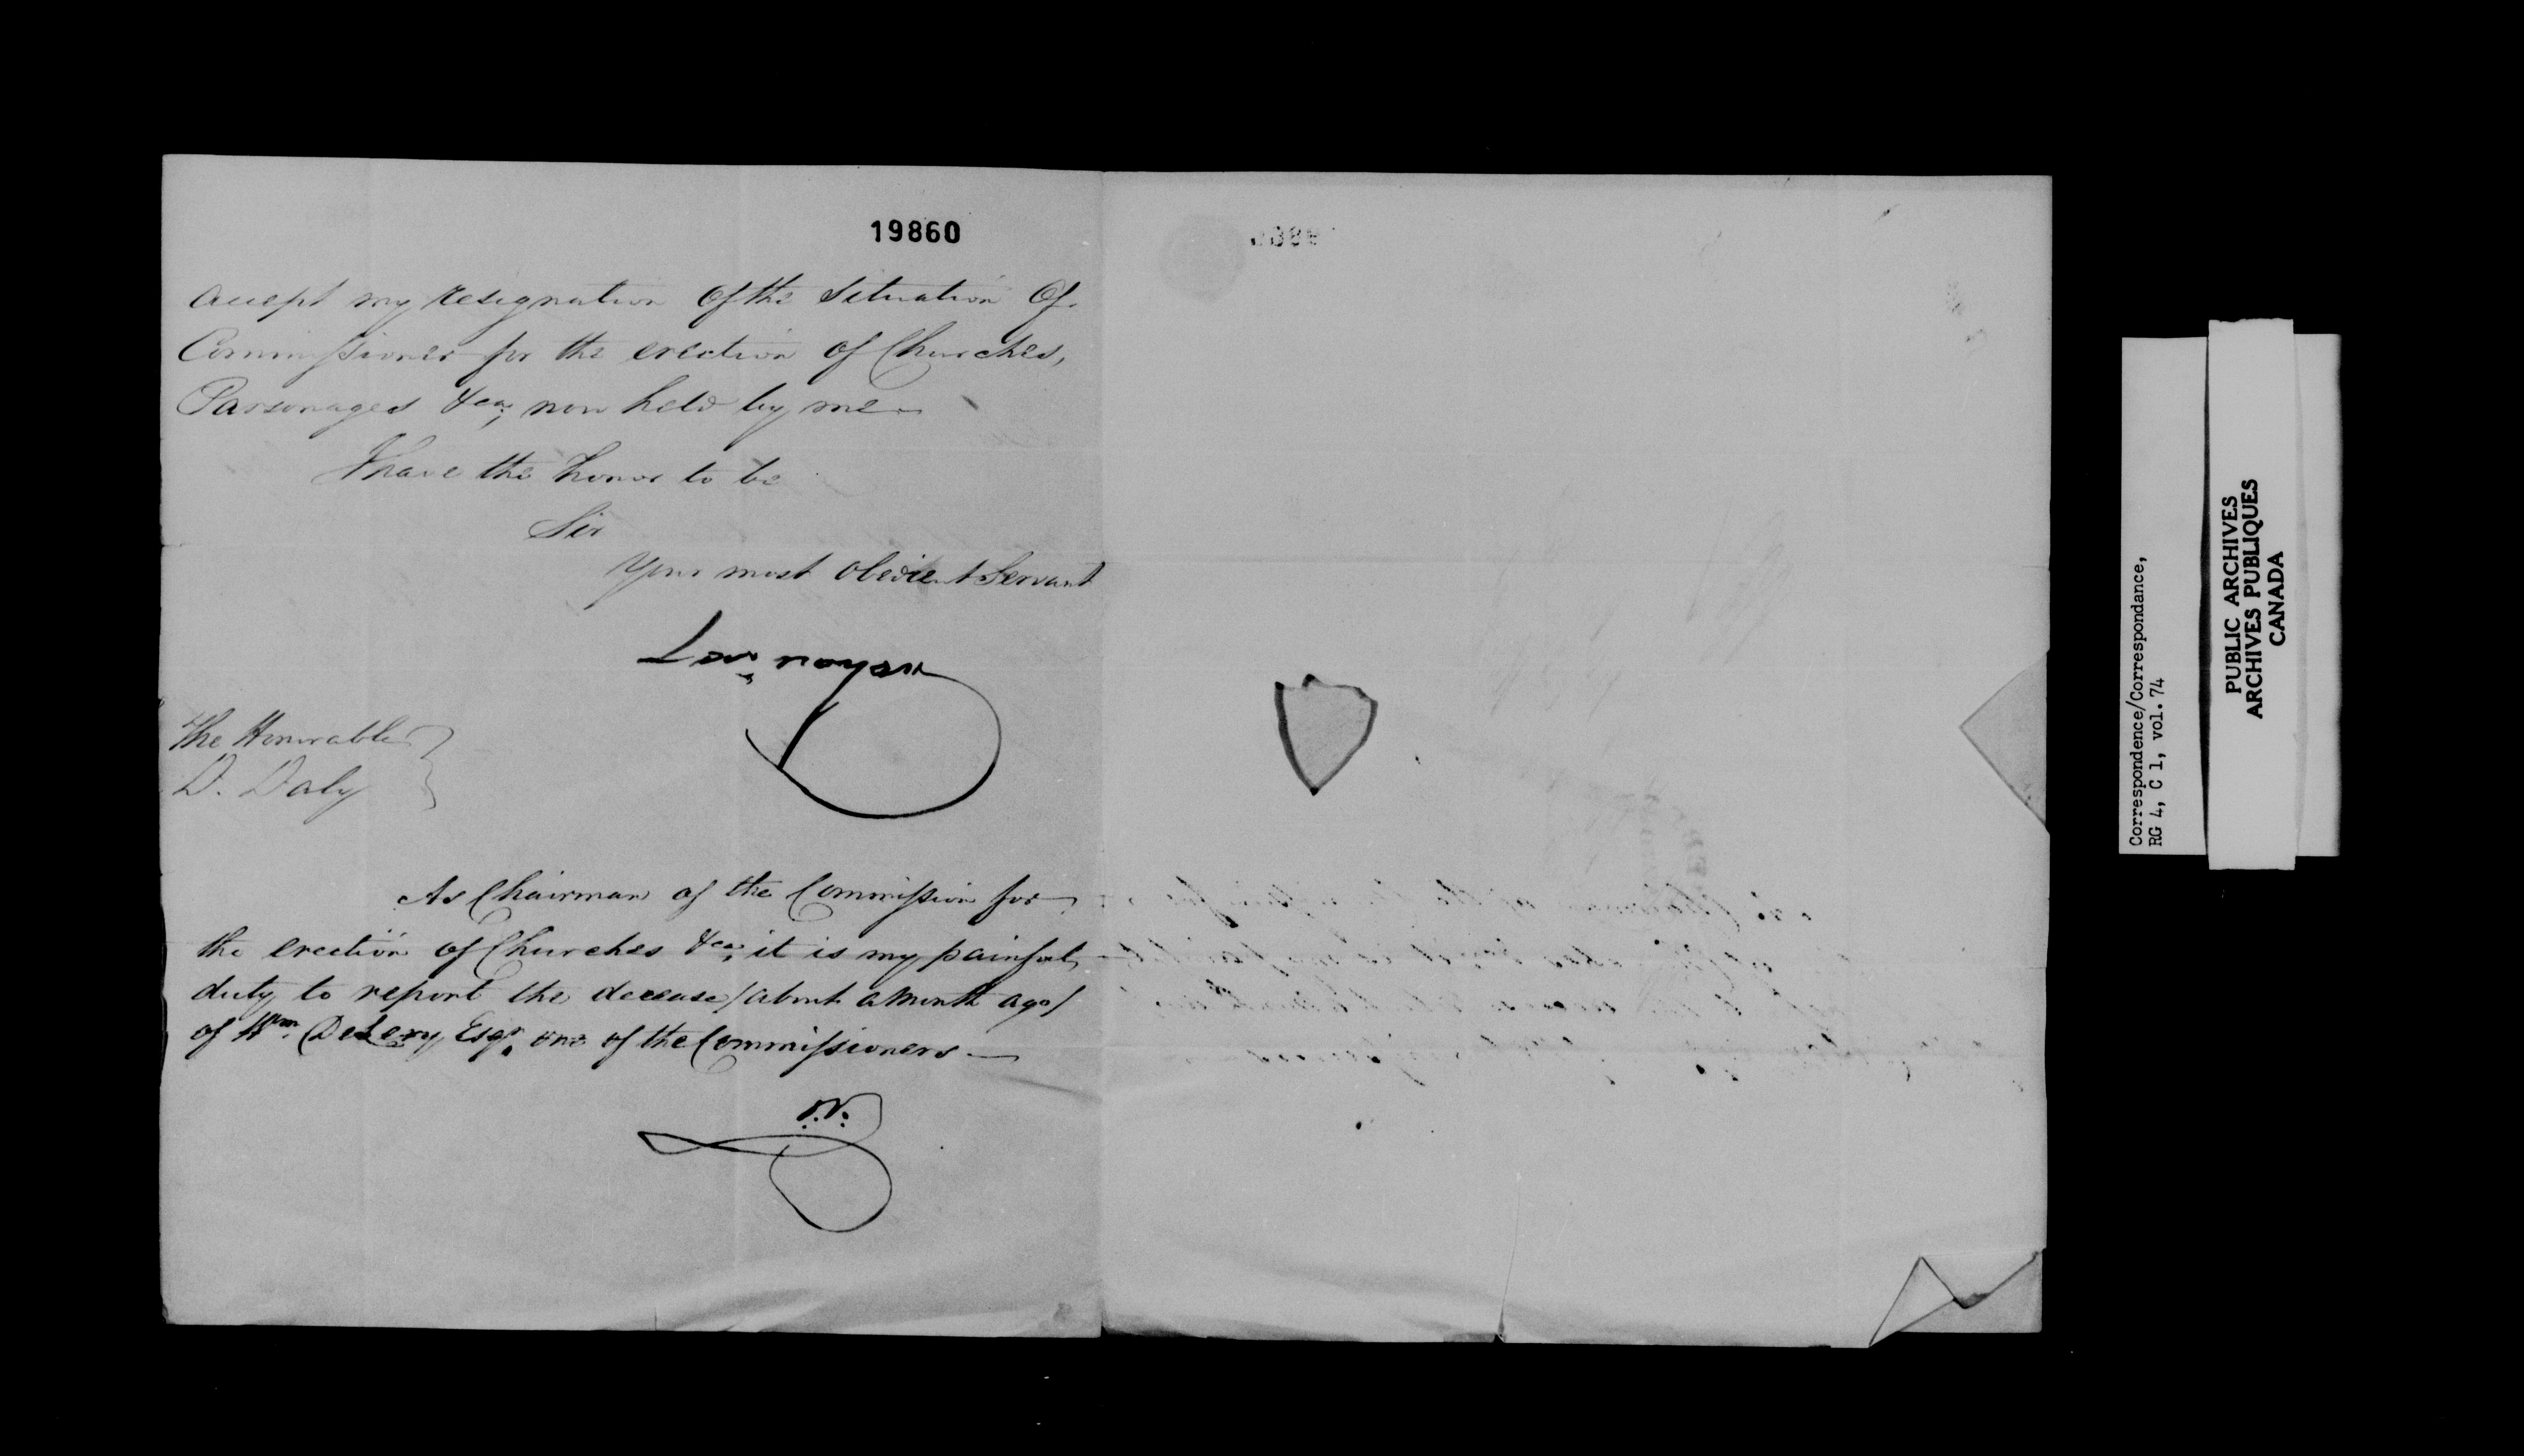 19860
Accept my resignation Of the Situation Of
Commissioner for the erection of Churches,
Parsonages &ca; now held by me—
I have the honor to be
Sir
Your most Obedient Servant
The Honorable
D. Daly
As Chairman of the Commission for
the erection of Churches &ca; it is my painful
duty to report the decease / about a Month ago /
of Wm. DeLery, Esqr. one of the Commissioners—
Correspondence/Correspondance,
RG 4, C 1, vol. 74
PUBLIC ARCHIVES
ARCHIVES PUBLIQUES
CANADA